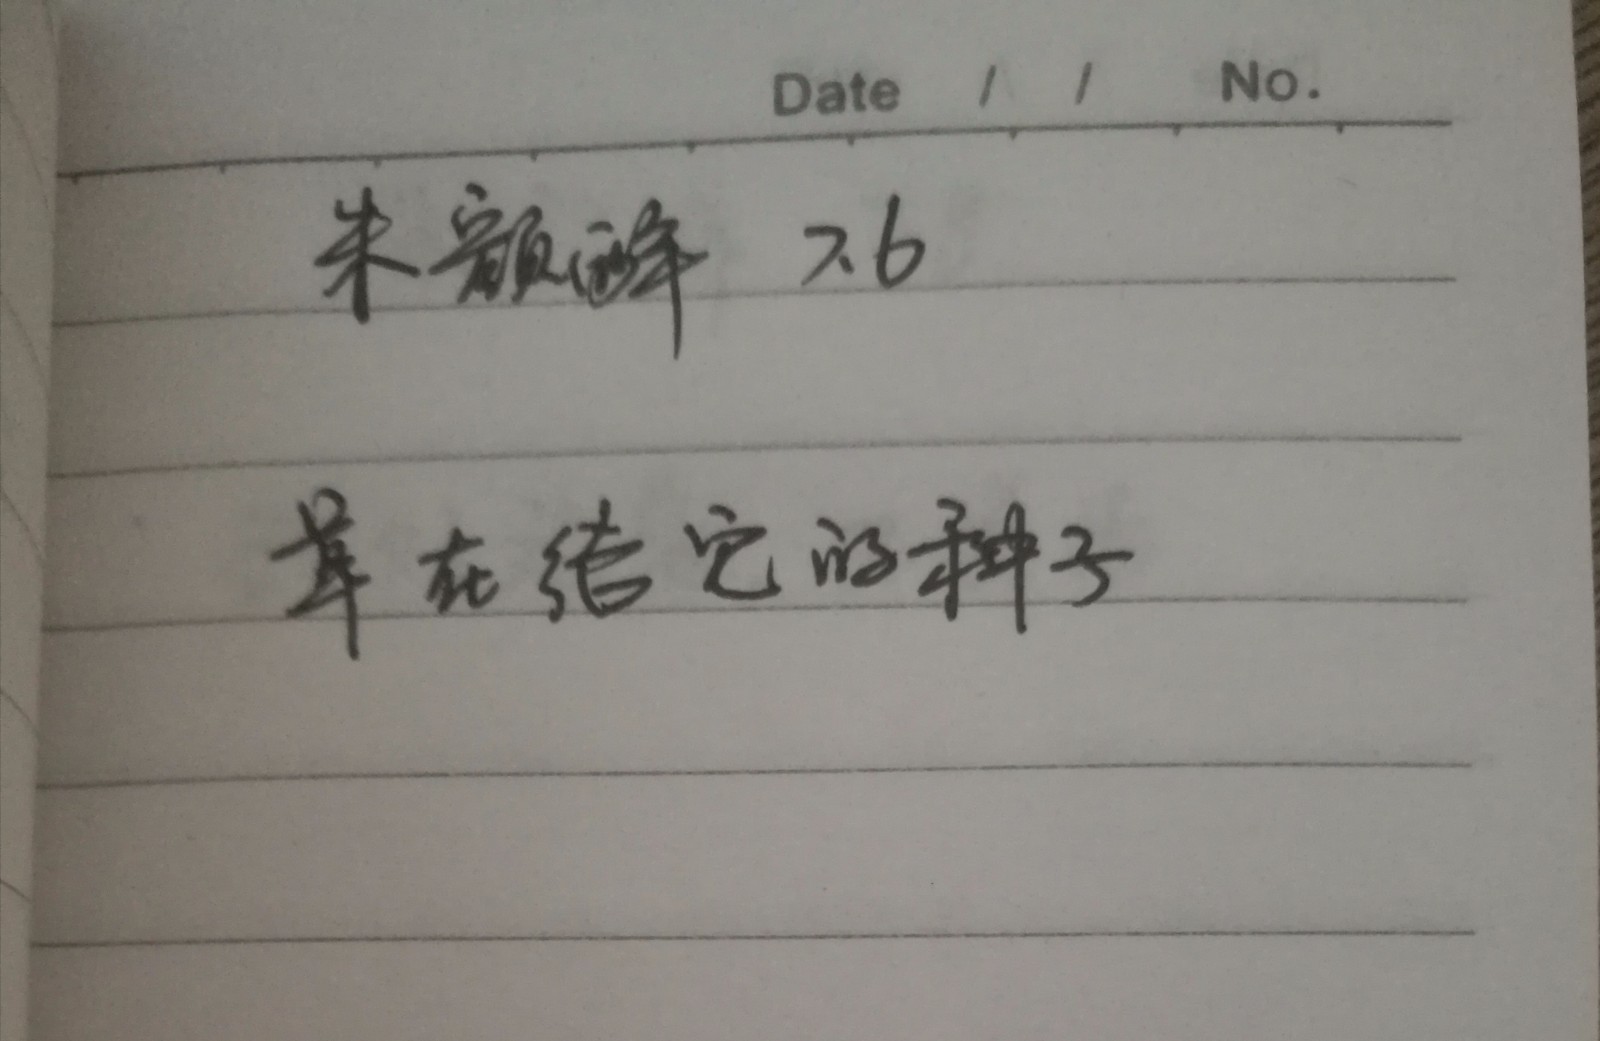 Date / / No.
朱颜酡 7.6
草在结它的种子